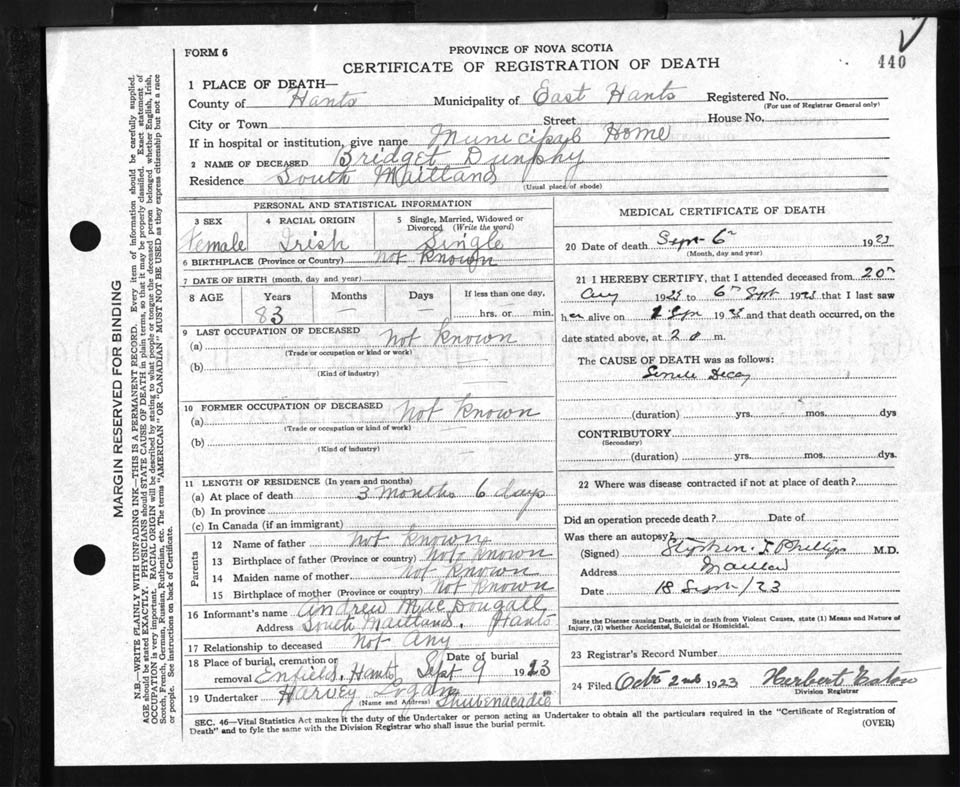 FORM 6
PROVINCE OF NOVA SCOTIA
CERTIFICATE OF REGISTRATION OF DEATH
440
1 PLACE OF DEATH—
County of Hants Municipality of East Hants Registered No.
(For use of Registrar General only)
City or Town Street House No.
If in hospital or institution, give name Municipal Home
2 NAME OF DECEASED Bridget Dunphy
Residence South Maitland
(Usual place of abode)
PERSONAL AND STATISTICAL INFORMATION
3 SEX 4 RACIAL ORIGIN 5 Single, Married, Widowed or Divorced (Write the word)
Female Irish Single
6 BIRTHPLACE (Province or Country) not known
7 DATE OF BIRTH (month, day and year)
8 AGE Years Months Days If less than one day,
83 — — hrs. or min.
9 LAST OCCUPATION OF DECEASED
(a) not known
(Trade or occupation or kind or work)
(b)
(Kind of industry)
10 FORMER OCCUPATION OF DECEASED
(a) not known
(Trade or occupation or kind of work)
(b)
(Kind of industry)
11 LENGTH OF RESIDENCE (In years and months)
(a) At place of death 3 months 6 days
(b) In province
(c) In Canada (if an immigrant)
Parents
12 Name of father not known
13 Birthplace of father (Province or country) not known
14 Maiden name of mother not known
15 Birthplace of mother (Province or country) not known
16 Informant's name Andrew MacDougall
Address South Maitland, Hants
17 Relationship to deceased not Any
18 Place of burial, cremation or removal Enfield, Hants Date of burial Sept 9 1923
19 Undertaker Harvey Logan Shubenacadie
(Name and Address)
MEDICAL CERTIFICATE OF DEATH
20 Date of death Sept 6th 1923
(Month, day and year)
21 I HEREBY CERTIFY, that I attended deceased from 20th
Aug 1923 to 6th Sept 1923 that I last saw
her alive on 1923 and that death occurred, on the
date stated above, at 2 m.
The CAUSE OF DEATH was as follows:
Senile Decay
(duration) yrs. mos. dys
CONTRIBUTORY
(Secondary)
(duration) yrs. mos. dys.
22 Where was disease contracted if not at place of death?
Did an operation precede death? Date of
Was there an autopsy?
(Signed) Stephen Phillips M.D.
Address Maitland
Date 18 Sept /23
State the Disease causing Death, or in death from Violent Causes, state (1) Means and Nature of
Injury, (2) whether Accidental, Suicidal or Homicidal.
23 Registrar's Record Number
24 Filed Oct 2nd 1923 Herbert Eaton
Division Registrar
SEC. 46—Vital Statistics Act makes it the duty of the Undertaker or person acting as Undertaker to obtain all the particulars required in the "Certificate of Registration of
Death" and to fyle the same with the Division Registrar who shall issue the burial permit.
(OVER)
MARGIN RESERVED FOR BINDING
N.B.—WRITE PLAINLY WITH UNFADING INK—THIS IS A PERMANENT RECORD. Every item of information should be carefully supplied.
AGE should be stated EXACTLY. PHYSICIANS should STATE CAUSE OF DEATH in plain terms, so that it may be properly classified. Exact statement of
OCCUPATION is very important. RACIAL ORIGIN will be described by stating to what people or tongue the deceased person belonged whether English, Irish,
Scotch, French, German, Russian, Ruthenian, etc. The terms "AMERICAN" OR "CANADIAN" MUST NOT BE USED as they express citizenship but not a race
or people. See instructions on back of Certificate.